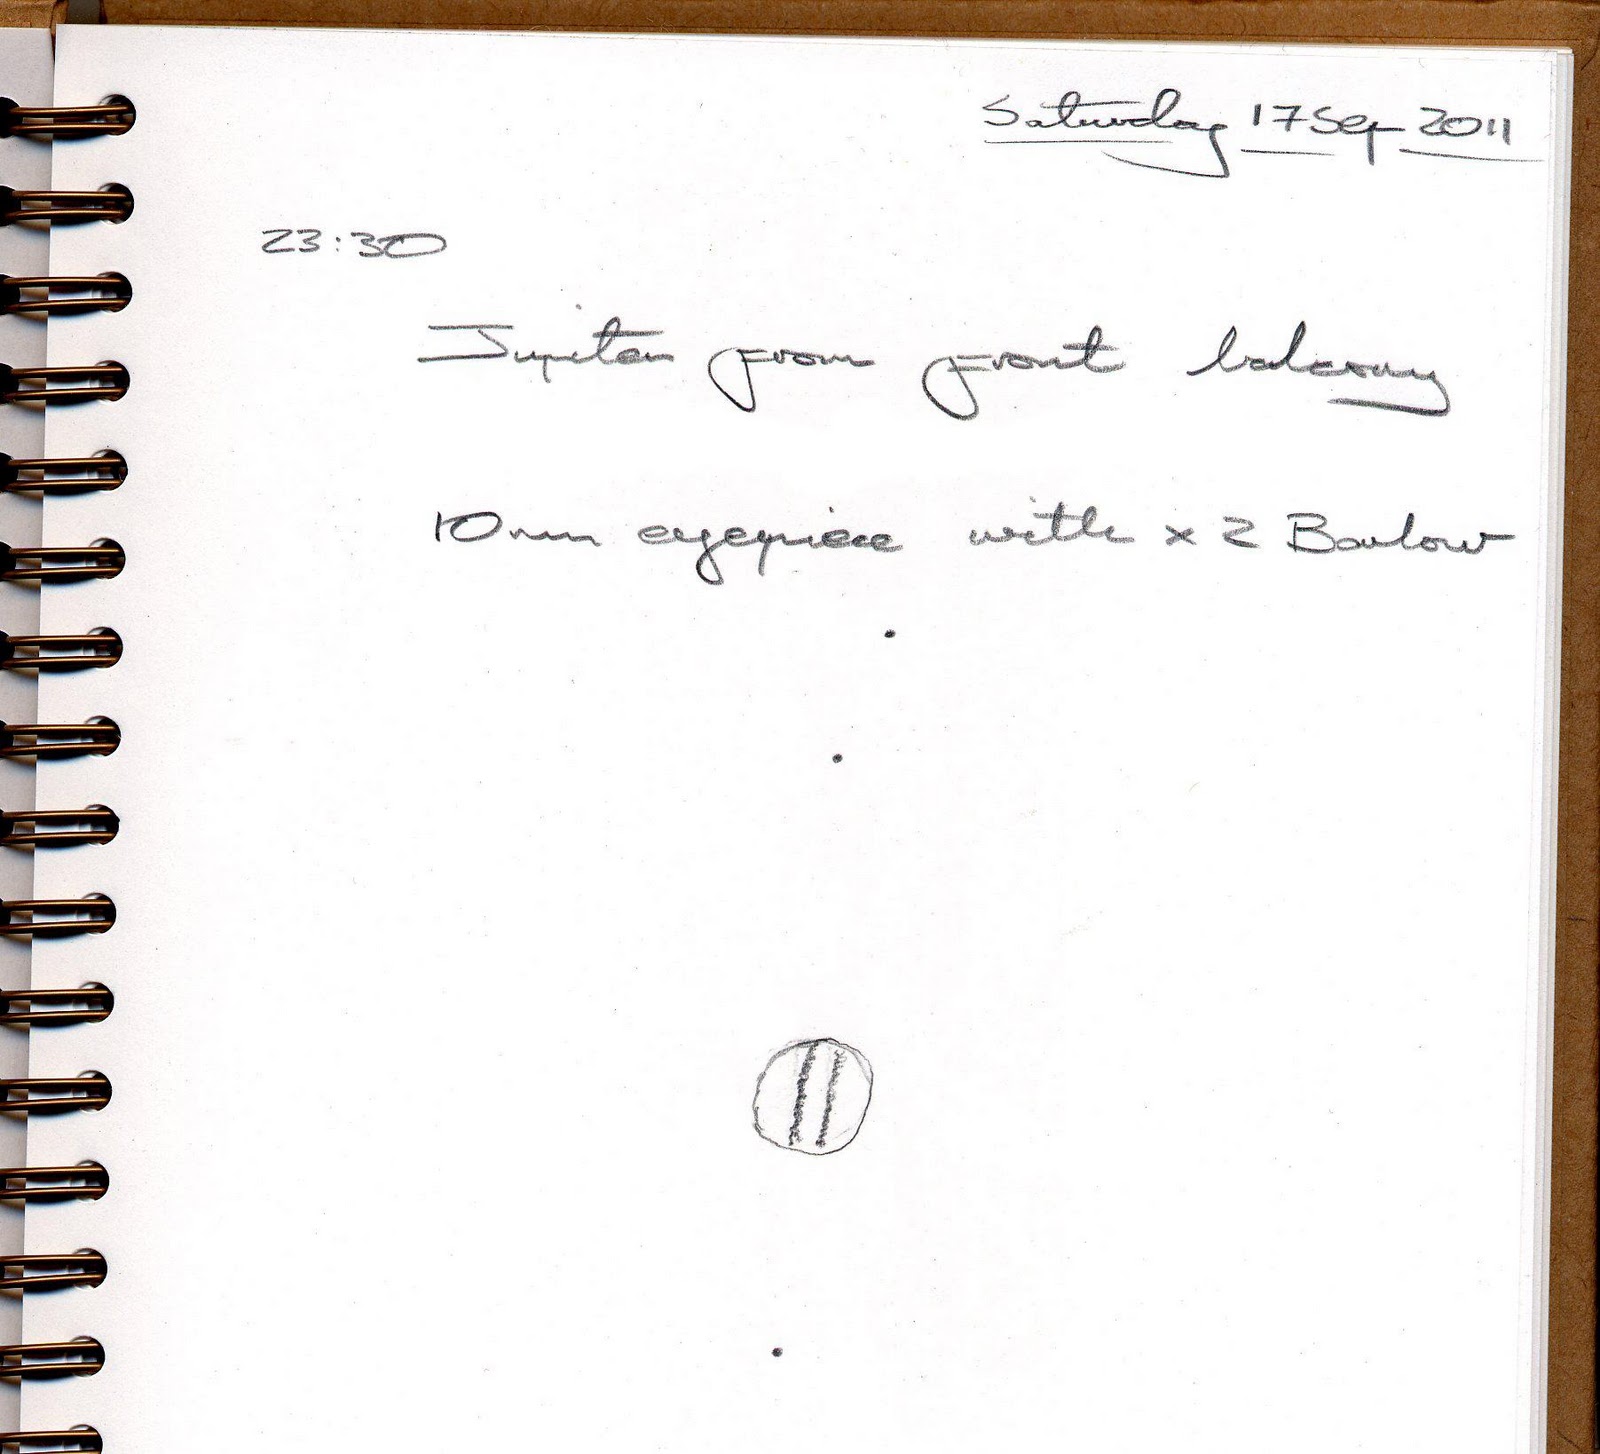 Saturday 17 Sep 2011
23:30
Jupiter from front balcony
10mm eyepiece with x 2 Barlow